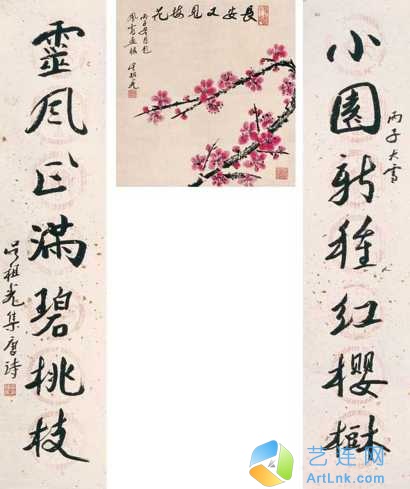 小園新種紅櫻樹
丙子大雪
長安又見梅花
鳳霞畫梅
吴祖光
靈風正滿碧桃枝
吴祖光集唐詩
艺连网
ArtLnk.com